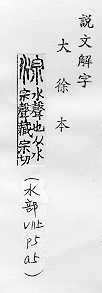 說文解字
大徐本
淙 水聲也从水
宗聲藏宗切
(水部
VII上
p5
a5)